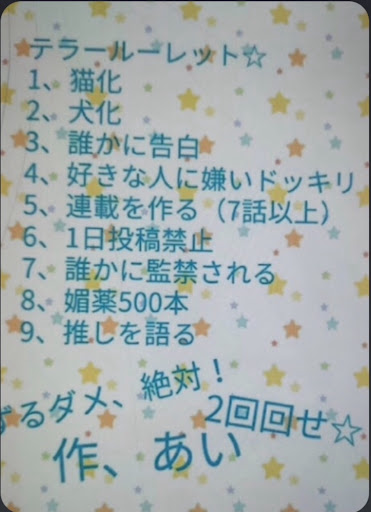 テラールーレット☆
1、猫化
2、犬化
3、誰かに告白
4、好きな人に嫌いドッキリ
5、連載を作る（7話以上）
6、1日投稿禁止
7、誰かに監禁される
8、媚薬500本
9、推しを語る
ずるダメ、絶対！
2回回せ☆
作、あい